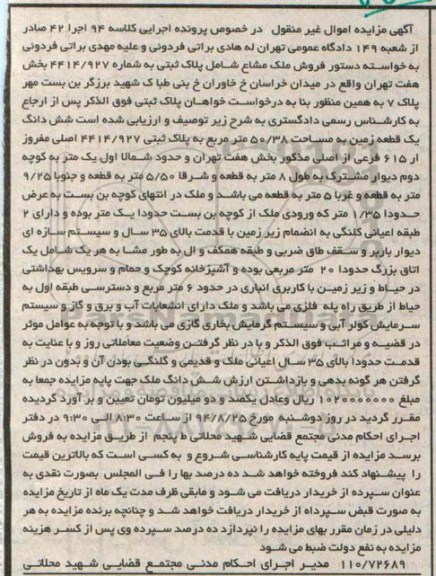 آگهی مزایده اموال غیر منقول  در خصوص پرونده اجرایی کلاسه ۹۴ اجرا ۴۲ صادر
از شعبه ۱۴۹ دادگاه عمومی تهران له هادی براتی فردونی و علیه مهدی براتی فردونی
به خواسته دستور فروش ملک مشاع شامل پلاک ثبتی به شماره ۴۴۱۴/۹۲۷ بخش
هفت تهران واقع در میدان خراسان خ خاوران خ بنی طبا ک شهید برزگر بن بست مهر
پلاک ۷ به همین منظور بنا به درخواست خواهان پلاک ثبتی فوق الذکر پس از ارجاع
به کارشناس رسمی دادگستری به شرح زیر توصیف و ارزیابی شده است شش دانگ
یک قطعه زمین به مساحت ۵۰/۳۸ متر مربع به پلاک ثبتی ۴۴۱۴/۹۲۷ اصلی مفروز
از ۶۱۵ فرعی از اصلی مذکور بخش هفت تهران و حدود شمالا اول یک متر به کوچه
دوم دیوار مشترک به طول ۸ متر به قطعه و شرقا ۵/۵۰ متر به قطعه و جنوبا ۹/۲۵
متر به قطعه و غربا ۵ متر به قطعه می باشد و ملک در انتهای کوچه بن بست به عرض
حدودا ۱/۳۵ متر که ورودی ملک از کوچه بن بست حدودا یک متر بوده و دارای ۲
طبقه اعیانی کلنگی به انضمام زیر زمین با قدمت بالای ۳۵ سال و سیستم سازه ای
دیوار باربر و سقف طاق ضربی و طبقه همکف و ال به طور مشا به هر یک شامل یک
اتاق بزرگ حدودا ۲۰ متر مربعی بوده و آشپزخانه کوچک و حمام و سرویس بهداشتی
در حیاط و زیر زمین با کاربری انباری در حدود ۶ متر مربع و دسترسی طبقه اول به
حیاط از طریق راه پله فلزی می باشد و ملک دارای انشعابات آب و برق و گاز و سیستم
سرمایش کولر آبی و سیستم گرمایش بخاری گازی می باشد و با توجه به عوامل موثر
در قضیه و مراتب فوق الذکر و با در نظر گرفتن وضعیت معاملاتی روز و با عنایت به
قدمت حدودا بالای ۳۵ سال اعیانی ملک و قدیمی و کلنگی بودن آن و بدون در نظر
گرفتن هر گونه بدهی و بازداشتن ارزش شش دانگ ملک جهت پایه مزایده جمعا به
مبلغ ۱۰۲۰۰۰۰۰۰۰ ریال وعادل یکصد و دو میلیون تومان تعیین و بر آورد گردیده
مقرر گردید در روز دوشنبه مورخ ۹۴/۸/۲۵ از ساعت ۸:۳۰ الی ۹:۳۰ در دفتر
اجرای احکام مدنی مجتمع قضایی شهید محلاتی ط پنجم از طریق مزایده به فروش
برسد مزایده از قیمت پایه کارشناسی شروع و به کسی است که بالاترین قیمت
را پیشنهاد کند فروخته خواهد شد ده درصد بها را فی المجلس بصورت نقدی به
عنوان سپرده از خریدار دریافت می شود و مابقی ظرف مدت یک ماه از تاریخ مزایده
به صورت قبض سپرداه از خریدار دریافت خواهد شد و چنانچه برنده مزایده به هر
دلیلی در زمان مقرر بهای مزایده را نپردازد ده درصد سپرده وی پس از کسر هزینه
مزایده به نفع دولت ضبط می شود
۱۱۰/۷۲۶۸۹ مدیر اجرای احکام مدنی مجتمع قضایی شهید محلاتی